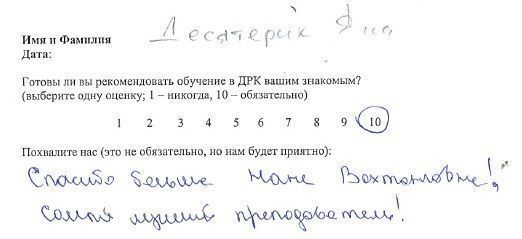 Имя и Фамилия Десятерик Яна
Дата:
Готовы ли вы рекомендовать обучение в ДРК вашим знакомым?
(выберите одну оценку; 1 – никогда, 10 – обязательно)
1 2 3 4 5 6 7 8 9 10
Похвалите нас (это не обязательно, но нам будет приятно):
Спасибо больше Нане Вахтанговне!,
самый лучший преподаватель!